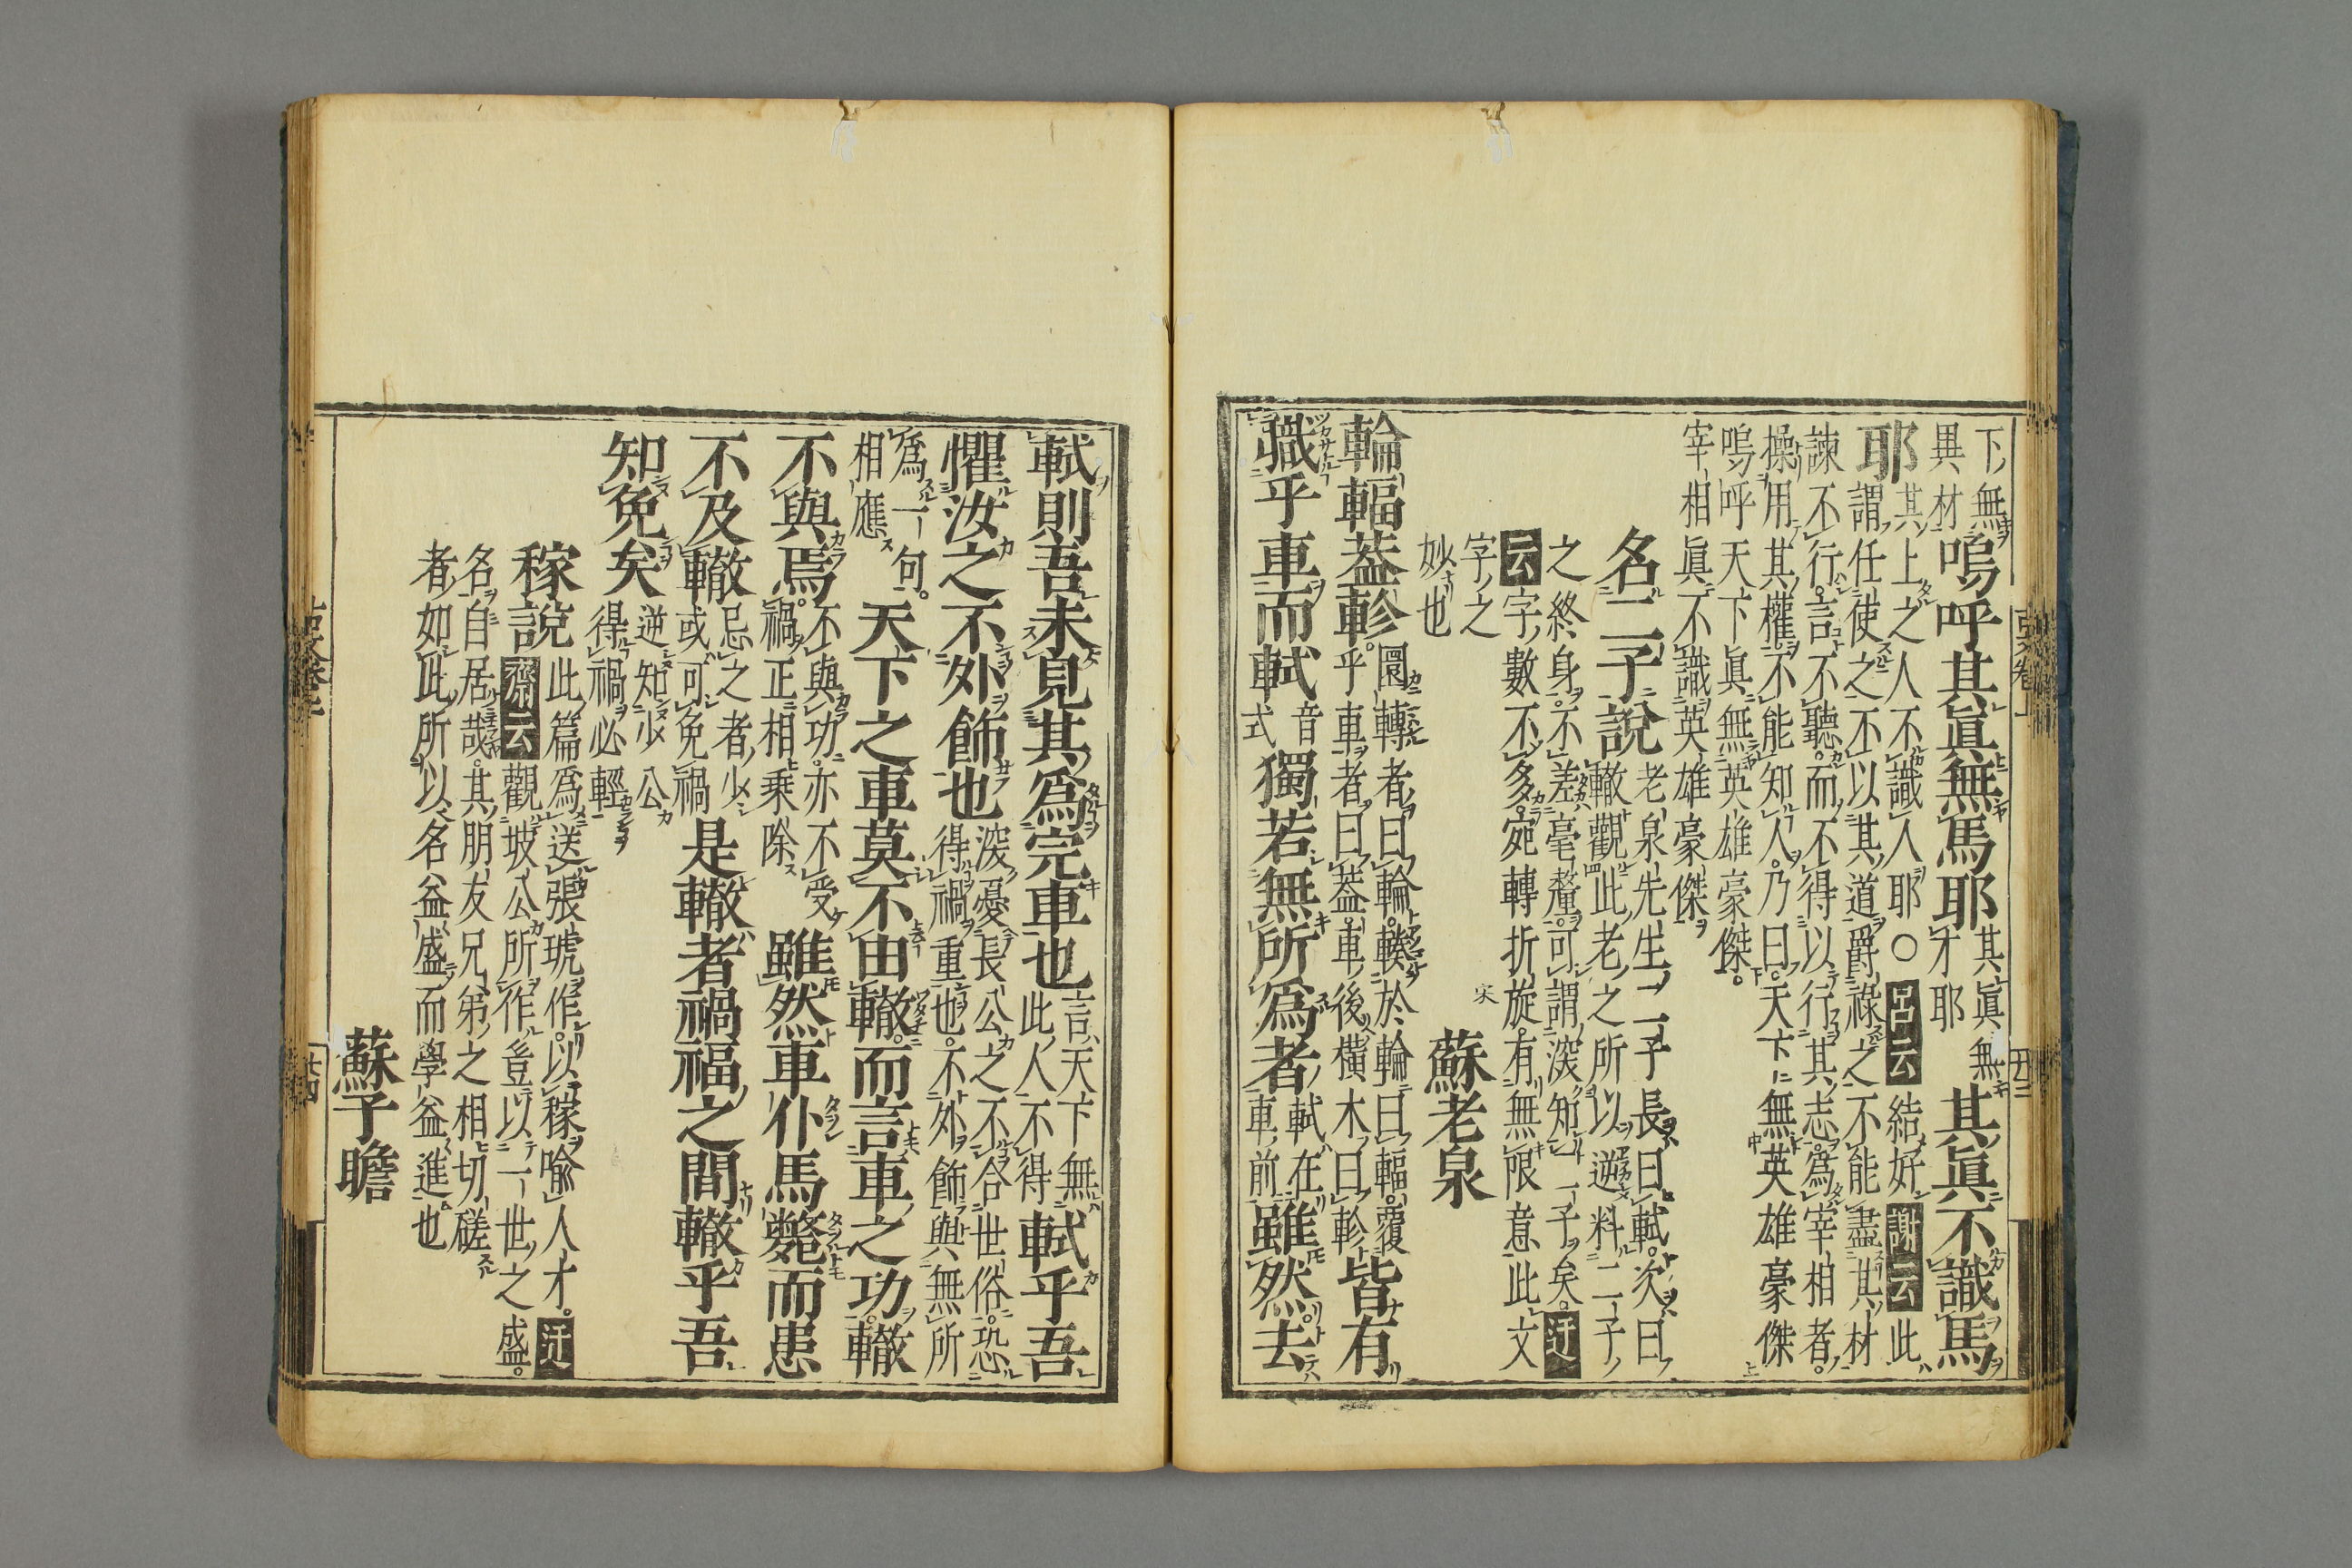 下無
異材
嗚呼其眞無馬耶
其眞無
才耶
其眞不識馬
耶
其上之人不識人耶○呂云結好謝云此
謂任使之不以其道爵祿之不能盡其材
諫不行言不聽而不得以行其志爲宰相者
操用其權不能知人乃曰天下無英雄豪傑
嗚呼天下眞無英雄豪傑
宰相眞不識英雄豪傑
名二子說
老泉先生二子長曰軾次曰
轍觀此老之所以逆料二子
之終身不差毫釐可謂深知二子矣迂
云字數不多宛轉折旋有無限意此文
字之
妙也
宋
蘇老泉
輪輻葢軫
圜轉者曰輪輳於輪曰輻覆
乎車者曰葢車後橫木曰軫
皆有
職乎車而軾
音
式
獨若無所爲者
軾在
車前
雖然去
軾則吾未見其爲完車也
言天下無
此人不得
軾乎吾
懼汝之不外飾也
深憂長公之不合世俗恐
得禍重也不外飾與無所
爲一句
相應
天下之車莫不由轍而言車之功轍
不與焉
不與功亦不受
禍正相乘除
雖然車仆馬斃而患
不及轍
忌之者少
或可免禍
是轍者禍福之間轍乎吾
知免矣
逆知少公
得禍必輕
稼說
此篇爲送張琥作以稼喩人才迂
齋云觀坡公所作豈以一世之盛
名自居哉其朋友兄弟之相切磋
者如此所以名益盛而學益進也
蘇子瞻
廿四